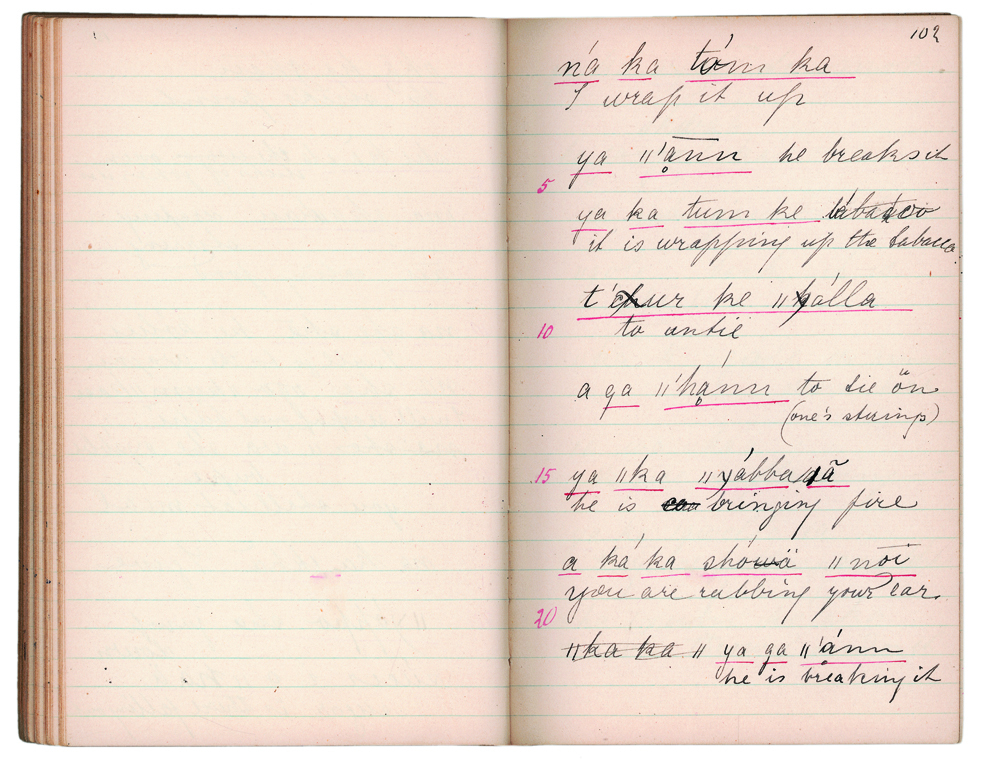 102
ná ka tóm ka
I wrap it up
ya ǁ'ann he breaks it
5
ya ka tum ke
it is wrapping up the tobacco
ke
10
to untie
a ga ǁ'hánn to tie on
(one's strings)
15 ya ǁka
he is bringing fire
a ká ka ǁnōi
you are rubbing your ear.
20
ǁka ka ǁ ya ga ǁ'ánn
he is breaking it